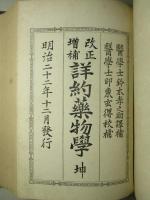 醫學士鈴木孝之助譯補
醫學士印東玄得校補
改正
增補
詳約藥物學 坤
明治二十二年十二月發行